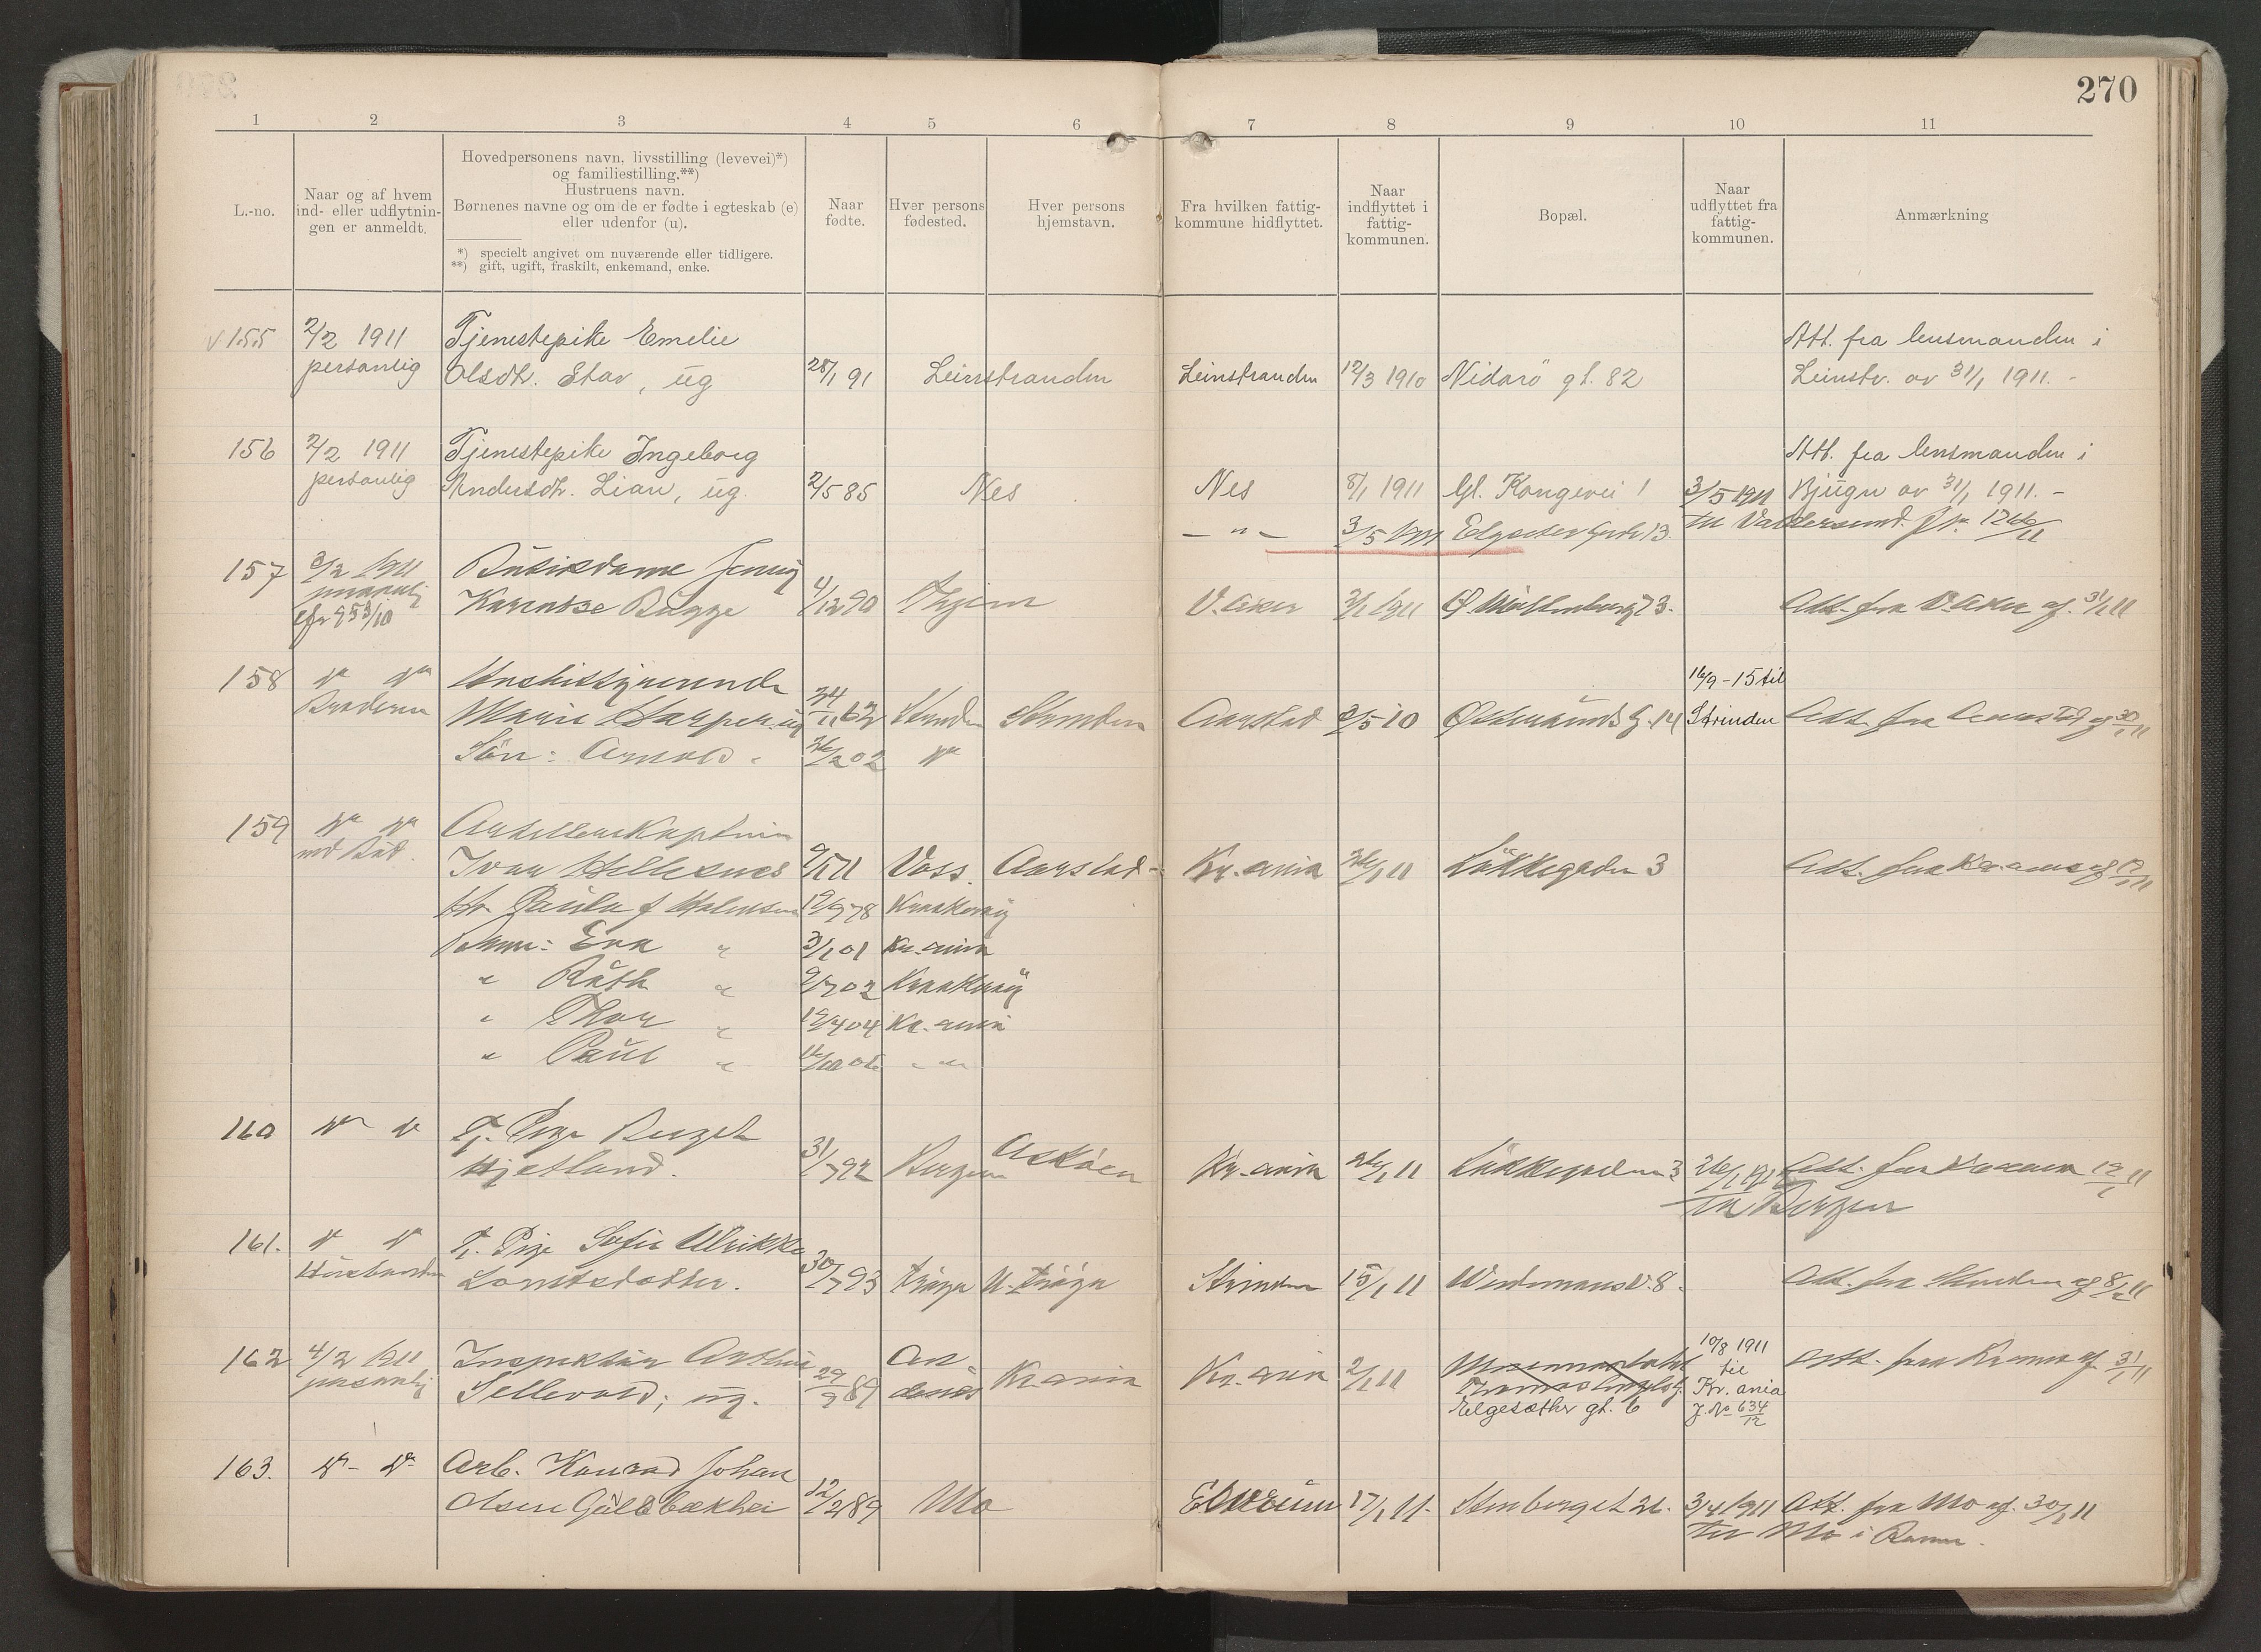 270
1 2 3 4 5 6 7 8 9 10 11
L.-no.
Naar og af hvem
ind- eller udflytnin-
gen er anmeldt.
Hovedpersonens navn, livsstilling (levevei)*)
og familiestilling.**)
Hustruens navn.
Børnenes navne og om de er fødte i egteskab (e)
eller udenfor (u).
*) specielt angivet om nuværende eller tidligere.
**) gift, ugift, fraskilt, enkemand, enke.
Naar
fødte.
Hver persons
fødested.
Hver persons
hjemstavn.
Fra hvilken fattig-
kommune hidflyttet.
Naar
indflyttet i
fattig-
kommunen.
Bopæl.
Naar
udflyttet fra
fattig-
kommunen.
Anmærkning
155 2/2 1911 Tjenestepike Emelie Att. fra lensmanden i
personlig Olsdtr. Stav, ug 28/1 91 Leinstranden Leinstranden 12/3 1910 Nidarö gt. 82 Leinstr. av 31/1 1911. -
156 2/2 1911 Tjenestepike Ingeborg Att. fra lensmanden i
personlig Andersdtr. Lian, ug. 2/5 85 Nes Nes 8/1 1911 Gl. Kongevei 1 3/5 1911 Bjugn av 31/1 1911. -
- " - 3/5 1911 Elgeseter gate 13. til Valdersund.
157 3/2 1911 Butikdame Jenny
personlig Karensze Bugge 4/12 90 Thjem V. Aker 2/1 1911 Ø. Möllenberg 73. Att. fra V. Aker af 31/1 11
cfr 953/10
158 do do 16/9-15 til
Broderen Marie Harper. ug 24/11 62 Strinden Strinden Aarstad 2/5 10 Østersunds g. 14 Strinden Att. fra Aarstad af 30/1 11
Søn: Arnold - 26/2 02 do
159 do do Artillerikaptein
ved Bud. Ivar Hellesnes 9/1 71 Voss. Aarstad - Kr.ania 26/1 11 Løkkegaden 3 Att. fra Kr.ania af 12/1 11
Hr. Paula f 12/9 78
Børn: Eva " 3/1 01 Kr.ania
" Ruth " 9/7 02
" Thor " 19/4 04 Kr.ania
" Paul " - " -
160 do do Tj. Pige Berget
Hjetland. 31/7 92 Bergen Askøen Kr.ania 26/1 11 Løkkegaden 3 Att. fra Kr.ania 12/1 11
til Bergen
161. do do Tj. Pige Sofie Ulrikke
Husbonden Lorntsdatter. 30/7 93 Strinden 15/1 11 Weidemannsv. 8. Att. fra Strinden af 8/1 11
162 4/2 1911 Inspektør Arthur 10/8 1911
personlig Sellevold; ug. 29/9 89 Kr.ania Kr.ania 2/1 11 til Att. fra Kr.ania af 31/1 11
Kr.ania
Elgesæther gt. 6 J. No 634/12
163. do - do Arb. Konrad Johan
Olsen Guldbækhei 12/2 89 Mo Elverum 17/1 11. Stenberget 26. 3/4 1911 Att. fra Mo af. 30/1 11
til Mo i Ranen.